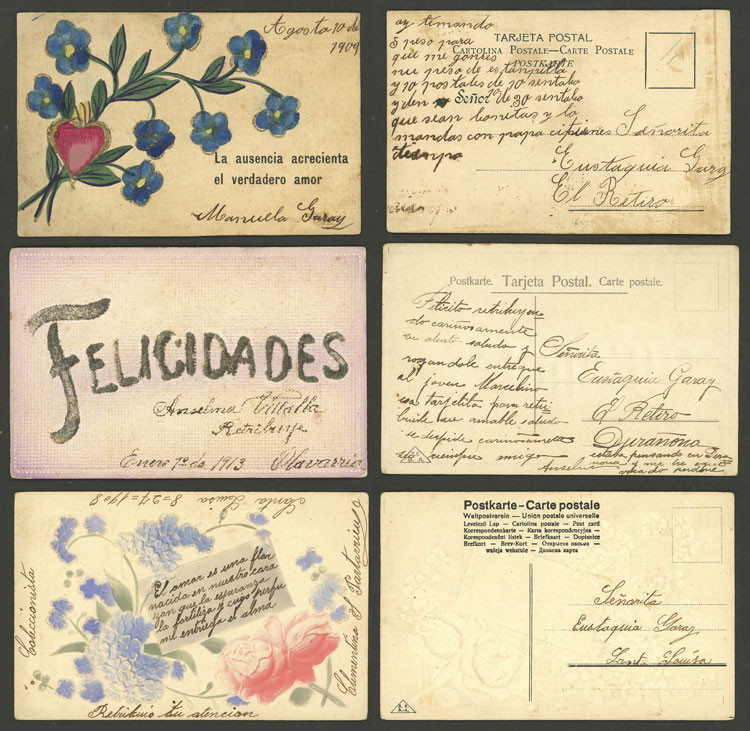 Agosto 10 de
1909
La ausencia acrecienta
el verdadero amor
Manuela Garay
TARJETA POSTAL
CARTOLINA POSTALE—CARTE POSTALE
POSTKARTE
Señor
ay temando
5 peso para
que me
nu preso de estanpilla
y 10 postales de 10 sentabo
y den de 30 sentabo
que sean bonitas y lo
mandas con papa
tienpo
Señorita
Eustaquia Garay
El Retiro
FELICIDADES
Anselma Villalba
Retribuye
Enero 1º de 1913 Olavarria
Postkarte. Tarjeta Postal. Carte postale.
Felicito retribuyen
do cariñosamente
su atento saludo y
rogandole entregue
al joven Marcelino
esa tarjetita para retri
buirle su amable saludo
se despide cariñosamente
su siempre amiga
Anselma
Señorita
Eustaquia Garay
El Retiro
Durañona
estaba pensando en Dura
nona y me
perdone
Santa Luisa
8=27=1908
Coleccionista
El amor es una flor
nacida en nuestro cora
zon que la esperanza
la fertiliza y cuyo perfu
me embriega el alma
Clementina
Retribuio tu atencion
Postkarte – Carte postale
Weltpostverein — Union postale universelle
Levelező Lap — Cartolina postale — Post card
Korrespondenzkarte — Karta korespondencyjna
Korespondenční lístek — Briefkaart — Dopisnice
Brefkort — Brev-Kort — Открытое письмо
Дописна карта
Señarita
Eustaquia Garay
Sant Louisa